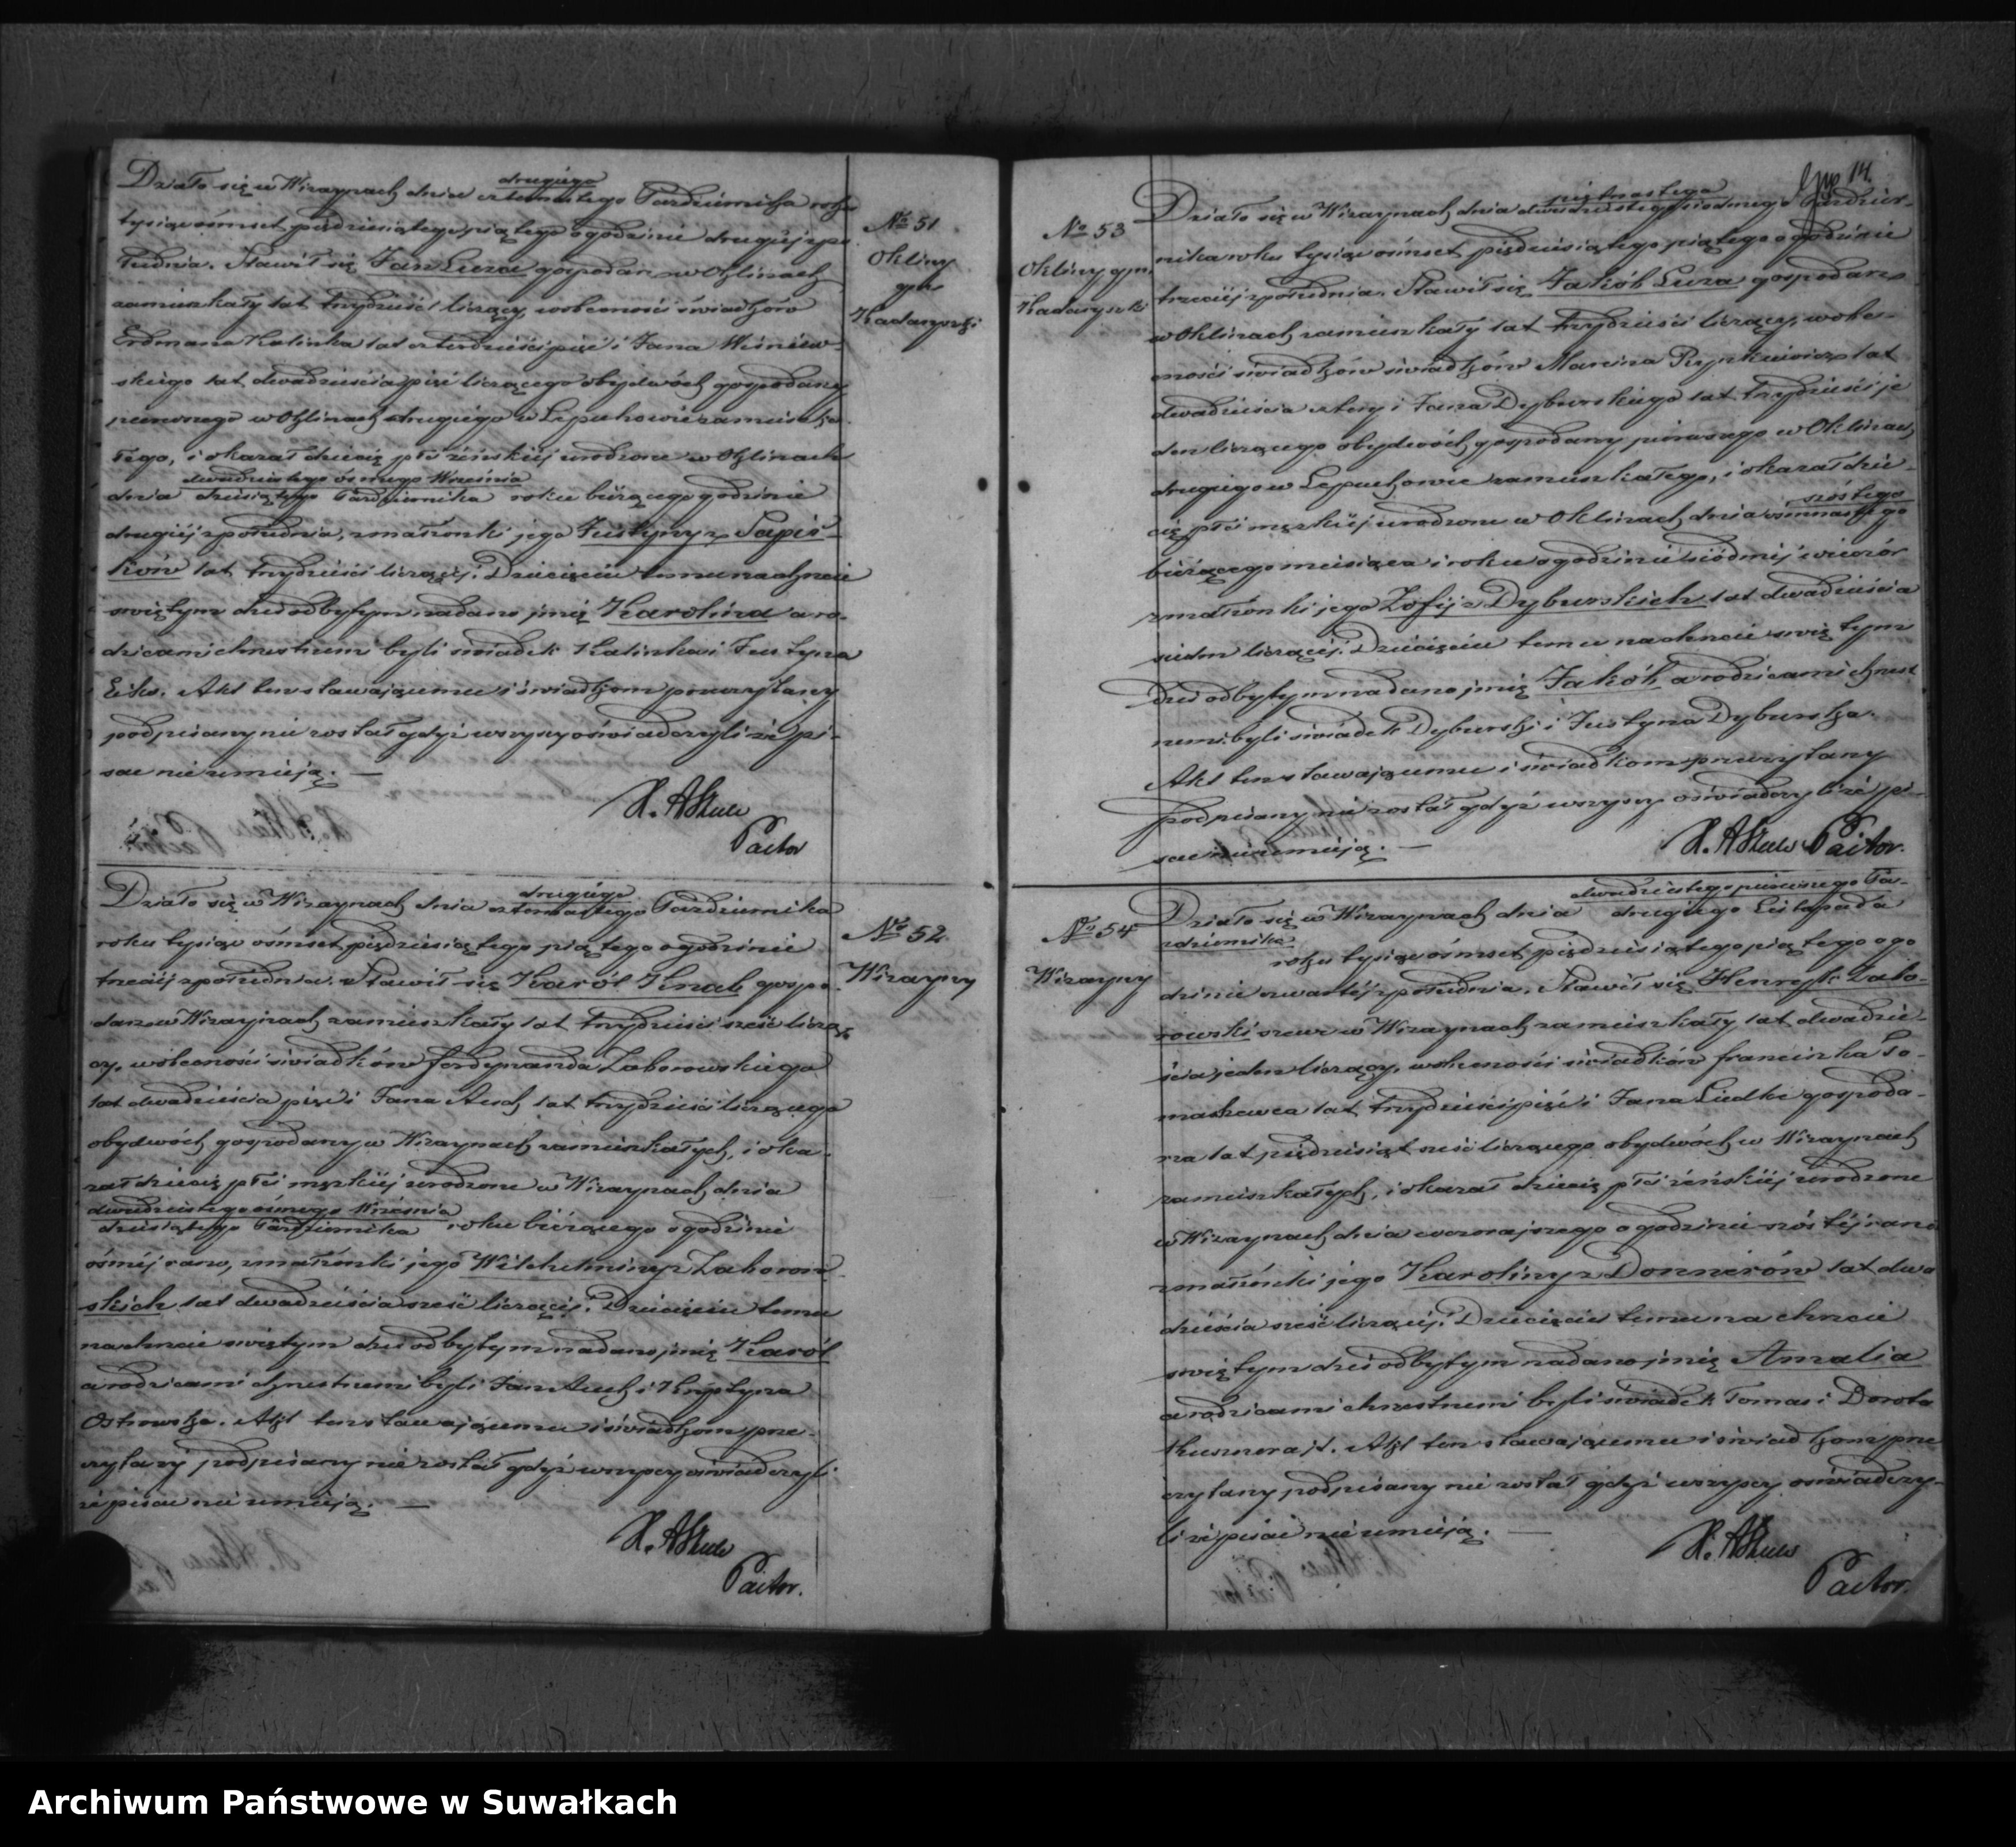 drugiego
Działo się w Wiżaynach dnia czternastego Październiksa roku
tysiąc ośmset pięćdziesiątego piątego o godzinie drugiéj z po-
łudnia. Stawił się Jan Luza gospodarz w Oklinach
zamieszkały lat trzydzieści liczący, w obecności świadków
Erdmana Kalinka lat czterdzieści pięć i Jana Wiśniew-
skiego lat dwadzieścia pięć liczącego obydwóch gospodarzy
pierwszego w Oklinach drugiego w Lepuchowie zamieszka-
łego, i okazał dziecię płci żeńskiéj urodzone w Oklinach
dwudziestego ósmego Września
dnia dziesiątego Października roku bieżącego o godzinie
drugiéj z południa, z małżonki jego Justyny z Sapis-
ków lat trzydzieści liczącéj. Dziecięciu temu na chrzcie
świętym dziś odbytym nadano imię Karolina a ro-
dzicami chrzestnemi byli świadek Kalinka i Justyna
Akt ten stawającemu i świadkom przeczytany
podpisany nie został gdyż wszyscy oświadczyli że pi-
sać nie umieją. —
Pastor
No 51
Okliny
gm.
Kadaryszki
drugiego
Działo się w Wiżaynach dnia czternastego Października
roku tysiąc ośmset pięćdziesiątego piątego o godzinie
trzeciéj z południa. Stawił się Karól Knab gospo-
darz w Wiżaynach zamieszkały lat trzydzieści sześć liczą-
cy, w obecności świadków Ferdynanda Zaborowskiego
lat dwadzieścia pięć i Jana Auch lat trzydzieści liczącego
obydwóch gospodarzy w Wiżaynach zamieszkałych, i oka-
zał dziecię płci męzkiéj urodzone w Wiżaynach dnia
dwudziestego ósmego Września
dziesiątego Października roku bieżącego o godzinie
ósméj rano, z małżonki jego Wilchelminy z Zaborow-
skich lat dwadzieścia sześć liczącéj. Dziecięciu temu
na chrzcie świętym dziś odbytym nadano imię Karól
a rodzicami chrzestnemi byli Jan Auch i Krystyna
Ostrowska. Akt ten stawającemu i świadkom prze-
czytany podpisany nie został gdyż wszyscy oświadczyli
że pisać nie umieją. —
Pastor.
No 52
Wiżayny
14.
No 53
Okliny gm.
Kadaryszki
piętnastego
Działo się w Wiżaynach dnia dwudziestego siódmego Paździer-
nika roku tysiąc ośmset pięćdziesiątego piątego o godzinie
trzeciéj z południa. Stawił się Jakób Luza gospodarz
w Oklinach zamieszkały lat trzydzieści liczący, w obe-
cności świadków świadków Marcina Rynkiewicz lat
dwadzieścia cztery i Jana Dyburskiego lat trzydzieści je-
den liczącego obydwóch gospodarzy pierwszego w Oklinach
drugiego w Lepuchowie zamieszkałego, i okazał dzie-
szóstego
cię płci męzkiéj urodzone w Oklinach dnia ósmnastego
bieżącego miesiąca i roku o godzinie siódméj wieczór
z małżonki jego Zofij z Dyburskich lat dwadzieścia
siedm liczącéj. Dziecięciu temu na chrzcie świętym
dziś odbytym nadano imię Jakób a rodzicami chrzest-
nemi byli świadek Dyburski i Justyna Dyburska.
Akt ten stawającemu i świadkom przeczytany
podpisany nie został gdyż wszyscy oświadczyli że pi-
sać nie umieją. —
Pastor.
No 54
Wiżayny
dwudziestego pierwszego Pa-
Działo się w Wiżaynach dnia drugiego Listopada
ździernika
roku tysiąc ośmset pięćdziesiątego piątego o go-
dzinie czwartéj z południa. Stawił się Henryk Zabo-
rowski szewc w Wiżaynach zamieszkały lat dwadzie-
ścia jeden liczący, w obecności świadków Franciszka To-
maszewca lat trzydzieści pięć i Jana Liedke gospoda-
rza lat pięćdziesiąt sześć liczącego obydwóch w Wiżaynach
zamieszkałych, i okazał dziecię płci żeńskiéj urodzone
w Wiżaynach dnia wczorajszego o godzinie szóstéj rano
z małżonki jego Karoliny z Donnerów lat dwa-
dzieścia sześć liczącéj. Dziecięciu temu na chrzcie
świętym dziś odbytym nadano imię Amalia
a rodzicami chrzestnemi byli świadek Tomas i Dorota
Akt ten stawającemu i świadkom prze-
czytany podpisany nie został gdyż wszyscy oświadczy-
li że pisać nie umieją. —
Pastor.
Archiwum Państwowe w Suwałkach